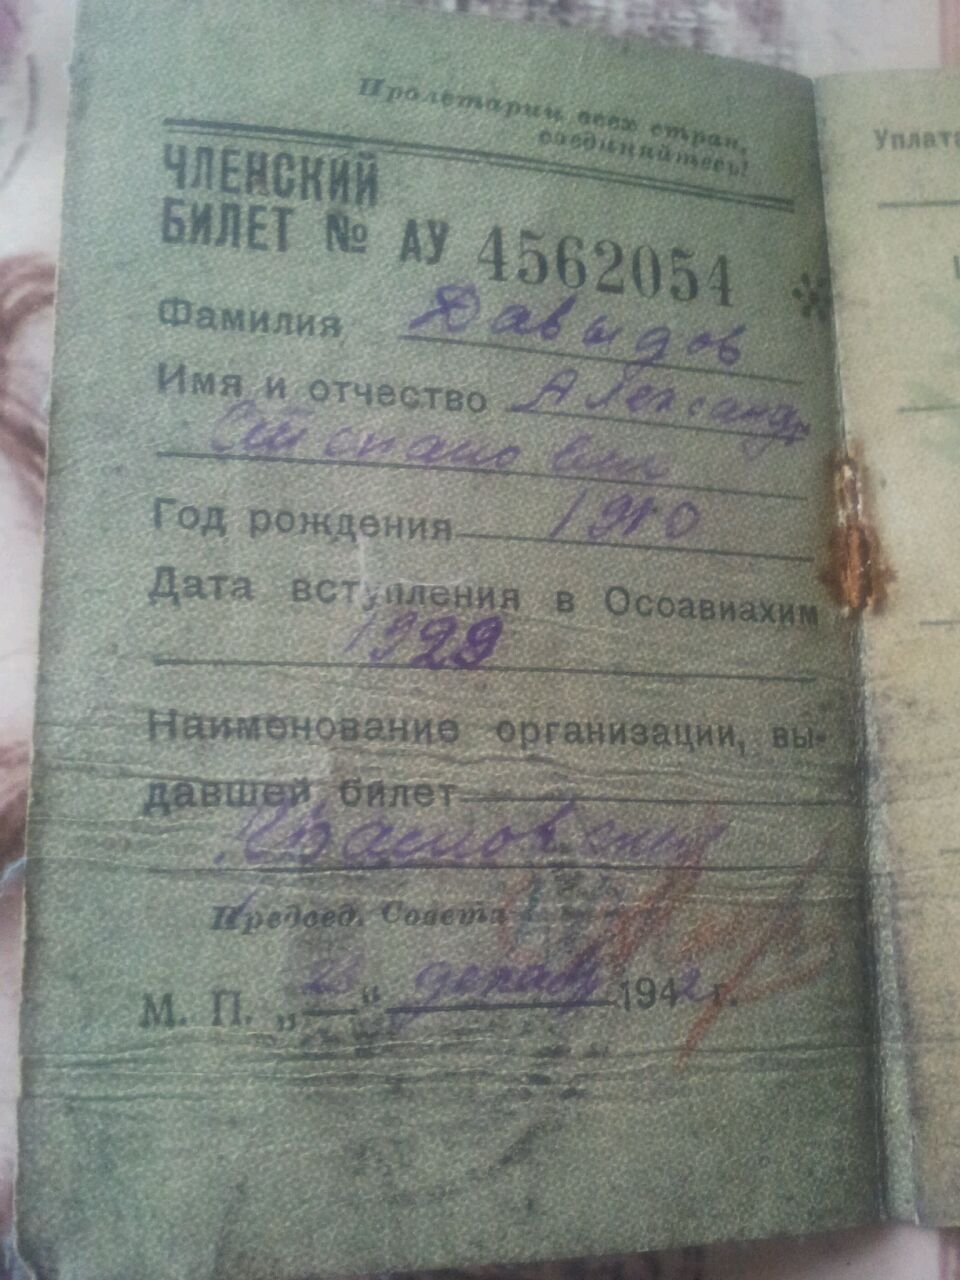 Пролетарии всех стран,
соединяйтесь!
ЧЛЕНСКИЙ
БИЛЕТ № АУ 4562054
Фамилия Давыдов
Имя и отчество Александр
Степанович
Год рождения 1910
Дата вступления в Осоавиахим
1929
Наименование организации, вы-
давшей билет
Председ. Совета
М. П. „23“ декабр 1942 г.
Уплата